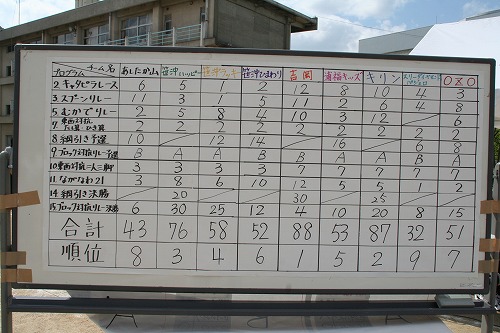 チーム名 あしたかよい 笹沖ハッピー 笹沖ラッキー 笹沖ひまわり 吉岡 浦福キッズ キリン OXO
プログラム
2 キャタピラレース 6 5 1 2 12 8 10 4 3
3 スプーンリレー 11 3 1 5 11 2 6 4 8
5 むかでリレー 2 5 8 4 10 3 12 6
7 東西対抗 2 2 2 2 2 2 2 2 2
8 綱引き予選 10 12 14 16 6 8
9 ブロック対抗リレー予選 B A A B B A B A A
10 東西対抗二人三脚 3 3 3 3 7 7 7 7 7
11 ながなわ21 3 8 6 10 12 5 5 1 2
14 綱引き決勝 20 30 25
15 ブロック対抗リレー決勝 6 30 25 12 4 10 20 8 15
合計 43 76 58 52 88 53 87 32 51
順位 8 3 4 6 1 5 2 9 7